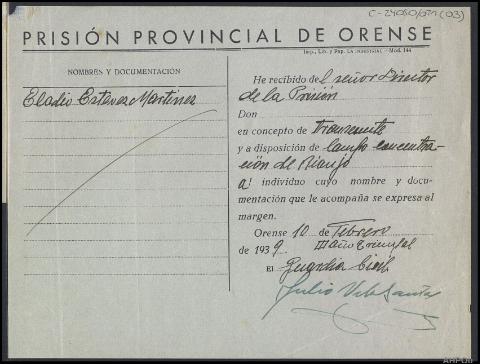 C-24050/021 (03)
PRISIÓN PROVINCIAL DE ORENSE
Imp., Lib. y Pap. LA INDUSTRIAL - Mod. 144
NOMBRES Y DOCUMENTACIÓN
Eladio Estevez Martinez
He recibido del señor Director
de la Prisión
Don
en concepto de transeunte
y a disposición de Campo concentra-
ción de Rianjo
al individuo cuyo nombre y docu-
mentación que le acompaña se expresa al
margen.
Orense 10 de Febrero
de 1939 III año triunfal
El Guardia Civil
Julio